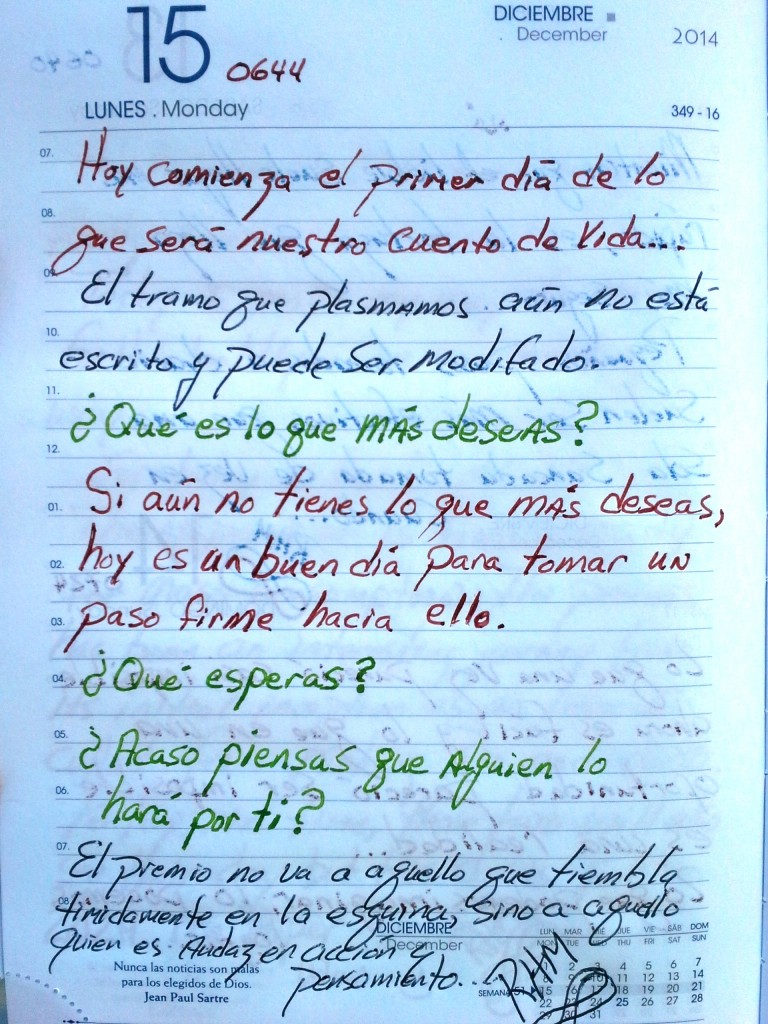 15
DICIEMBRE
December
2014
0644
LUNES . Monday
349 - 16
07.
Hoy comienza el primer día de lo
08.
que será nuestro cuento de vida...
09.
El tramo que plasmamos aún no está
10.
escrito y puede ser modifado.
11.
¿Qué es lo que más deseas?
12.
01.
Si aún no tienes lo que más deseas,
hoy es un buen día para tomar un
02.
paso firme hacia ello.
03.
¿Qué esperas?
04.
05.
¿Acaso piensas que Alguien lo
06.
hará por ti?
07.
El premio no va a aquello que tiembla
08.
timidamente en la esquina, sino a aquello
quien es Audaz en acción y
pensamiento...
RHM
DICIEMBRE
December
Nunca las noticias son malas
para los elegidos de Dios.
Jean Paul Sartre
SEMANA 51
LUN MAR MIÉ JUE VIE SÁB DOM
MON TUE WED THU FRI SAT SUN
2 3 4 5 6 7
9 10 11 12 13 14
15 16 17 18 19 20 21
22 23 24 25 26 27 28
29 30 31